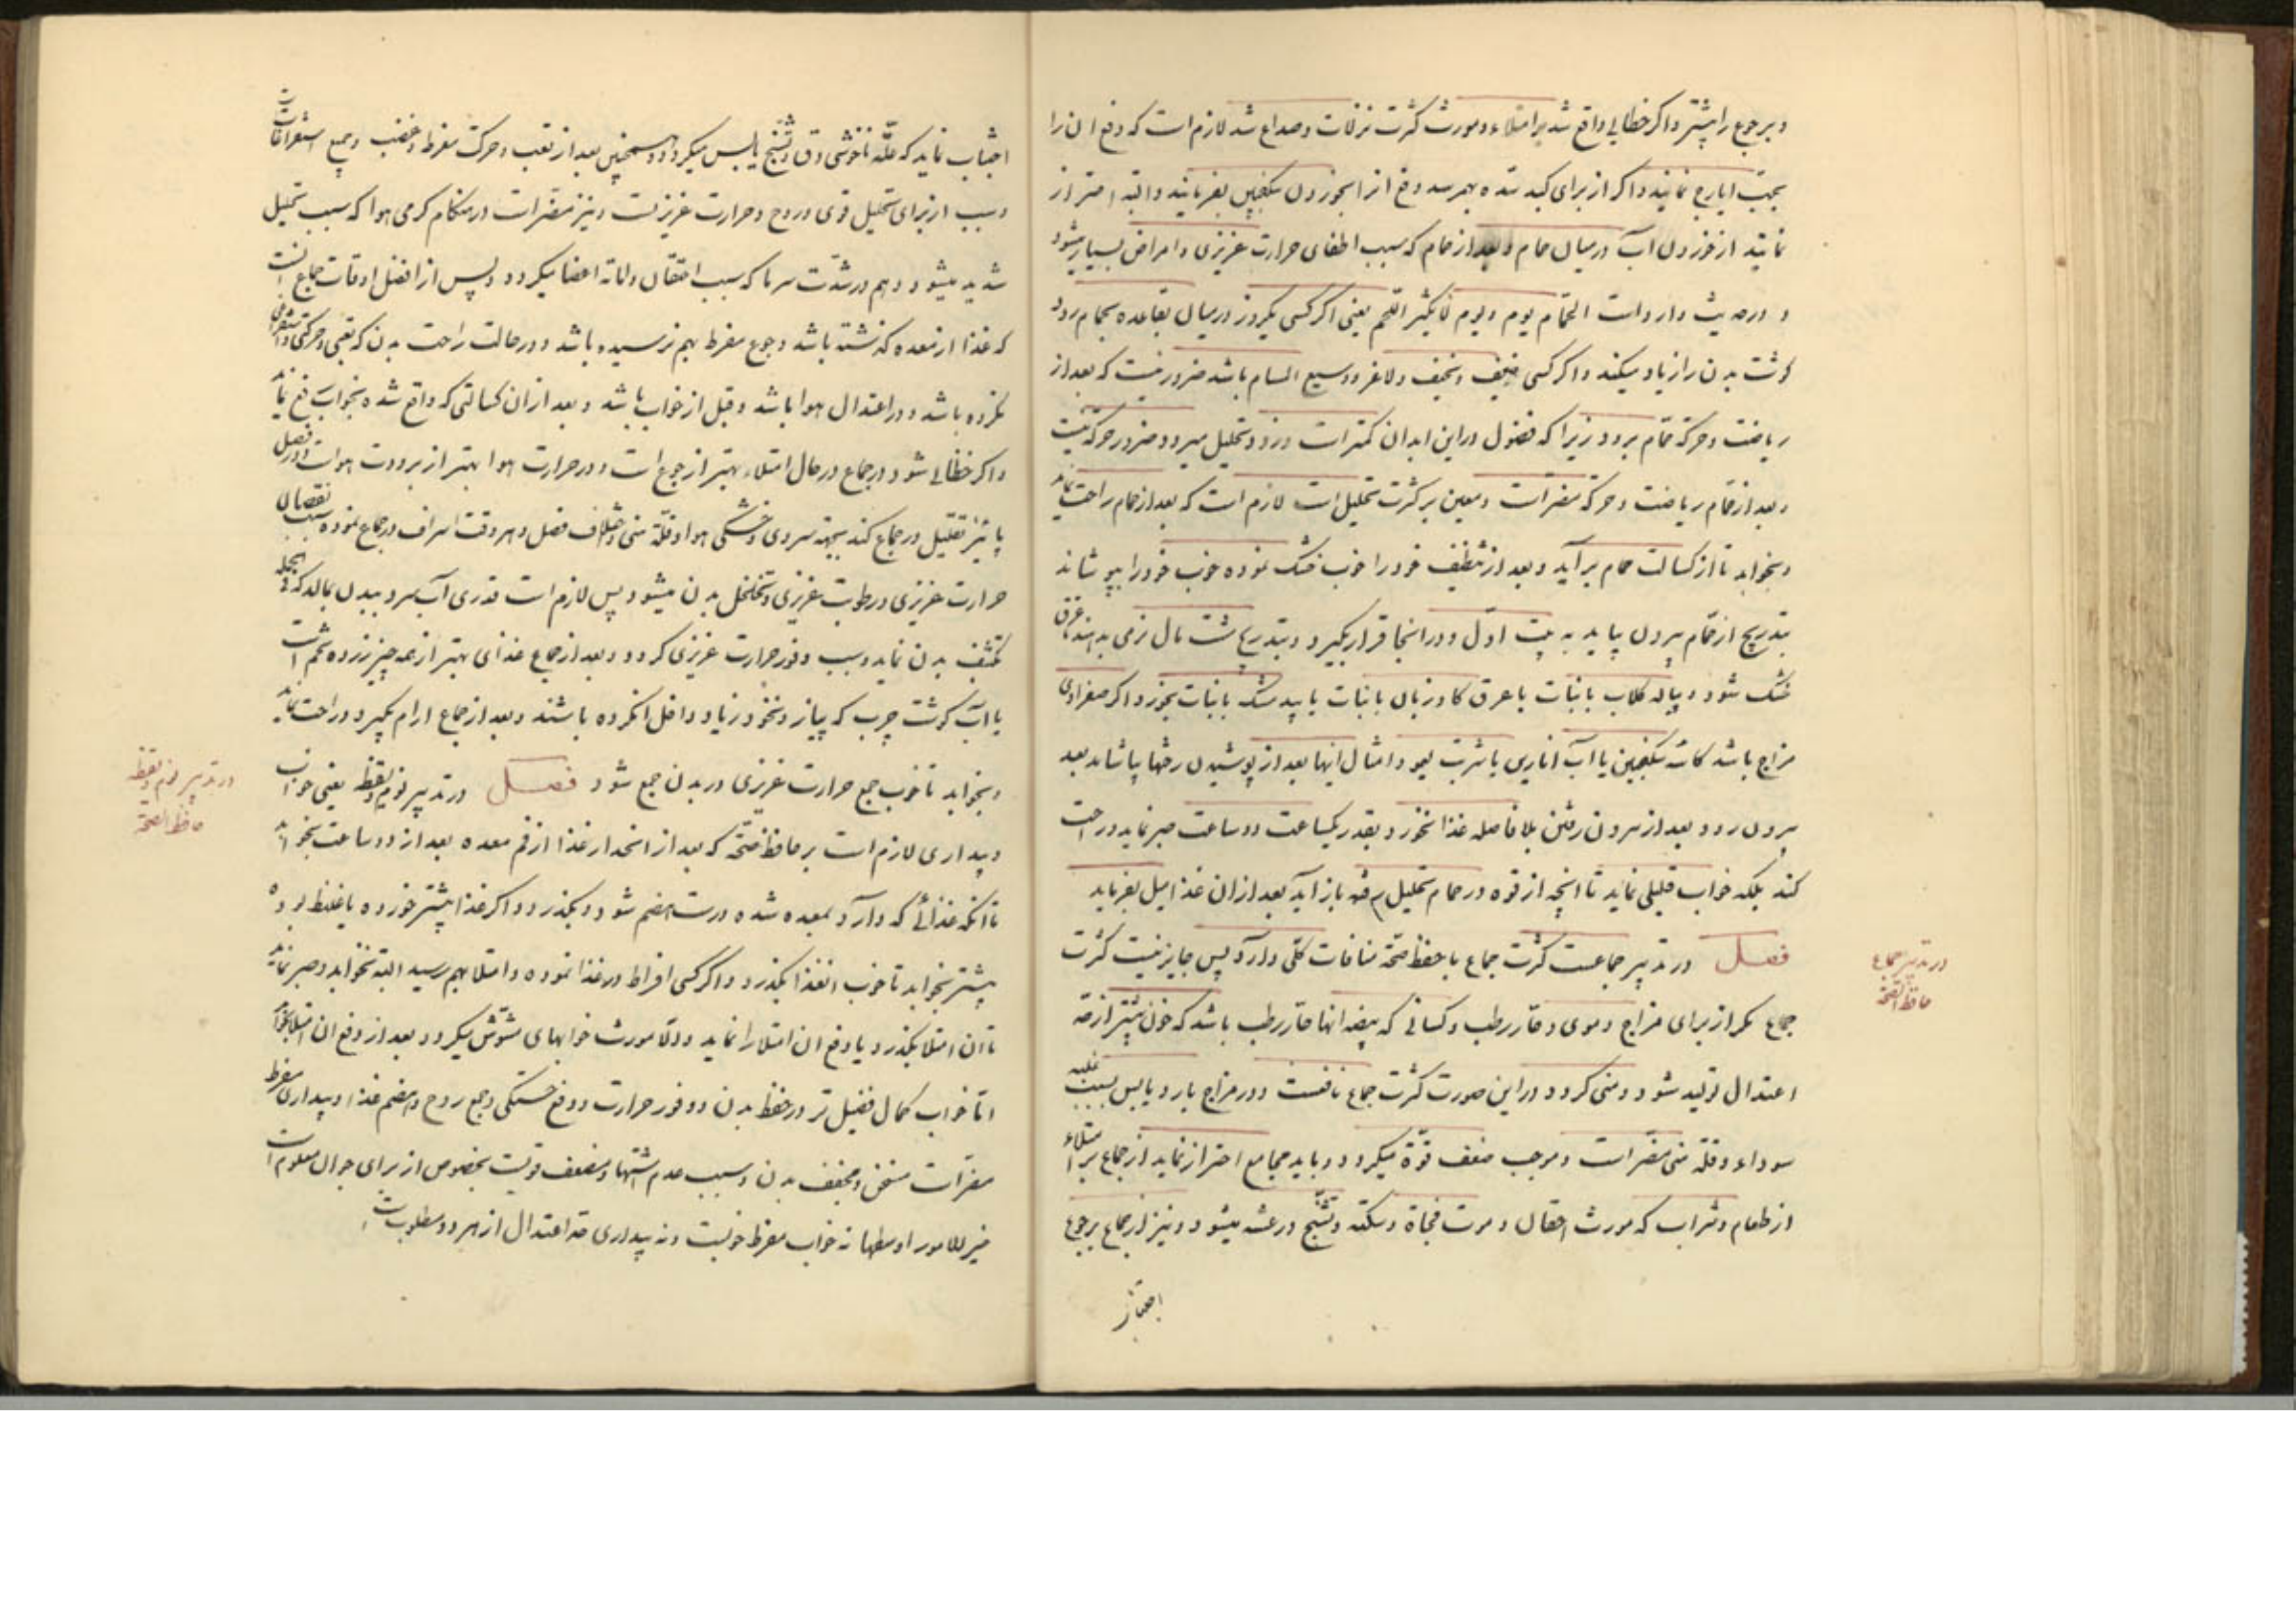 و بر جوع را بیشتر و اگر خطایی واقع شد بر امتلاء و مورث کثرت نزلات و صداع شد لازم است که دفع ان را
بحب ایارج نمایند و اگر از برای کبد سده بهم رسد دفع انرا بخوردن سکنجبین بفرمایند و البته احتراز
نمایند از خوردن آب در میان حمام و بعد از حمام که سبب اطفای حرارت غریزی و امراض بسیار میشود
و در حدیث وارد است الحمام یوم و یوم لا یکثر اللحم یعنی اگر کسی یکروز در میان بقاعده بحمام رود
گوشت بدن را زیاد میکند و اگر کسی ضعیف و نحیف و لاغر و وسیع المسام باشد ضرور نیست که بعد از
ریاضت و حرکة حمام برود زیرا که فضول در این ابدان کمتر است و زود تحلیل میرود ضرور حرکة نیست
و بعد از حمام ریاضت و حرکة مضر است و معین بر کثرت تحلیل است لازم است که بعد از حمام راحت نماید
و بخوابد تا از کسالت حمام برآید و بعد از تنظیف خود را خوب خشک نموده خوب خود را بپوشاند
بتدریج از حمام بیرون بیاید به بیت اول و در انجا قرار بگیرد و بتدریج مشت مال نرمی بدهند تا عرق
خشک شود و پیاله گلاب با نبات یا عرق گاوزبان با نبات یا بیدمشک با نبات بخورد و اگر صفراوی
مزاج باشد سکنجبین یا آب اناری یا شربت لیمو و امثال اینها بعد از پوشیدن رختها بیاشامد بعد
بیرون رود و بعد از بیرون رفتن بلا فاصله غذا نخورد و بقدر یکساعت دو ساعت صبر نماید و راحت
کند بلکه خواب قلیلی نماید تا انچه از قوه در حمام تحلیل رفته باز آید بعد از ان غذا میل بفرماید
فصل در تدبیر جماعست کثرت جماع با حفظ صحة منافات کلی دارد پس جایز نیست کثرت
جماع مگر از برای مزاج دموی و حار رطب و کسانی که بیضه انها حار رطب باشد که خون بیشتر از حد
اعتدال تولید شود و منی گردد در این صورت کثرت جماع نافعست و در مزاج بارد یابس بسبب غلبه
سوداء و قلة منی مضر است و موجب ضعف قوة میگردد و باید مجامع احتراز نماید از جماع بر امتلاء
از طعام و شراب که مورث و موت فجاة و سکته و تشنج و رعشه میشود و نیز از جماع بر جوع
در تدبیر جماع
حافظ الصحة
اجتناب نماید که علة ناخوشی دق و تشنج یابس میگردد و همچنین بعد از تعب و حرکت مفرط و غضب و جمیع استفراغات
و سبب از برای تحلیل قوی و روح و حرارت غریزیست و نیز مضر است در هنگام گرمی هوا که سبب تحلیل
شدید میشود و هم در شدت سرما که سبب احتقان و اماته اعضا میگردد و پس از افضل اوقات جماع انست
که غذا از معده گذشته باشد و جوع مفرط بهم نرسیده باشد و در حالت راحت بدن که تعبی و حرکتی و استفراغی
نکرده باشد و در اعتدال هوا باشد و قبل از خواب باشد و بعد از ان کسالتی که واقع شده بخواب رفع نماید
و اگر خطایی شود در جماع در حال امتلاء بهتر از جوع است و در حرارت هوا بهتر از برودت هواست و در فصل
پائیز تقلیل در جماع کند بجهة سردی و خشکی هوا و قلة منی و اختلاف فصل و هر وقت اسراف در جماع نموده سبب نقصان
حرارت غریزی و رطوبت غریزی و تخلخل بدن میشود پس لازم است قدری آب سرد ببدن بمالد که فی الجمله
تکثیف بدن نماید و سبب وفور حرارت غریزی گردد و بعد از جماع غذای بهتر از همه چیز زرده تخم است
یا آب گوشت چرب که پیاز و نخود زیاد داخل انکرده باشند و بعد از جماع ارام بگیرد و راحت نماید
و بخوابد تا خوب جمع حرارت غریزی در بدن جمع شود فصل در تدبیر نوم و یقظه یعنی خواب
و بیداری لازم است بر حافظ صحة که بعد از انحدار غذا از فم معده بعد از دو ساعت بخوابد
تا انکه غذائی که وارد بمعده شده درست هضم شود و بگذرد و اگر غذا بیشتر خورده یا غلیظ بوده
بیشتر نخوابد تا خوب انغذا بگذرد و اگر کسی افراط در غذا نموده و امتلا بهم رسید البته نخوابد و صبر نماید
تا ان امتلا بگذرد یا دفع ان امتلا را نماید و الا مورث خوابهای مشوش میگردد بعد از دفع ان امتلا بخوابد
اما خواب کمال فضیلتر در حفظ بدن و وفور حرارت و دفع خستگی و جمع روح و هضم غذا و بیداری مفرط
مضر است مسخن و مجفف بدن و سبب عدم اشتها و مضعف قویست بخصوص از برای جوان معلوم است
خیر الامور اوسطها نه خواب مفرط خوبست و نه بیداری حد اعتدال از هر دو مطلوبست
در تدبیر نوم و یقظه
حافظ الصحة